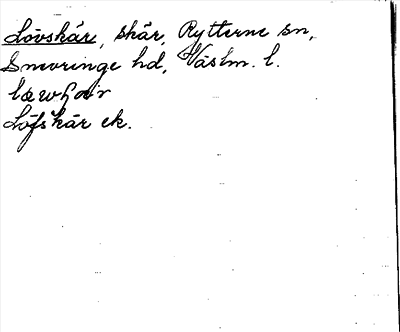 Lövskär, skär, Rytterne sn,
Snevringe hd, Västm. l.
Löfskär ek.